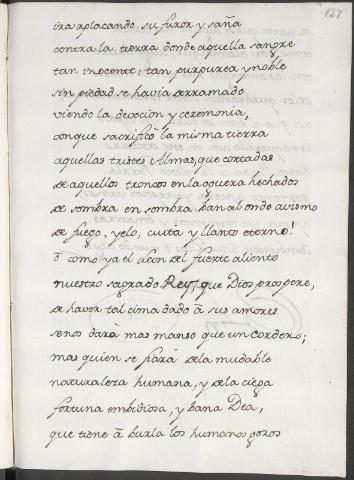 127
ira aplacando su furor y saña
contra la tierra donde aquella sangre
tan inocente; tan purpurea y noble
sin piedad se havia derramado
viendo la devocion y ceremonia,
conque sacrificó la misma tierra
aquellas tristes Almas, que cortadas
de aquellos troncos en la oguera hechados
de sombra en sombra han al ondo avismo
de fuego, yelo, cuita y llanto eterno!
ò como ya el Leon del fuerte aliento
nuestro sagrado Rey, que Dios prospere,
de haver tal cima dado à sus amores
senos dará mas manso que un cordero;
mas quien se fiará dela mudable
naturaleza humana, y dela ciega
fortuna embidiosa, y bana Dea,
que tiene à burla los humanos gozos